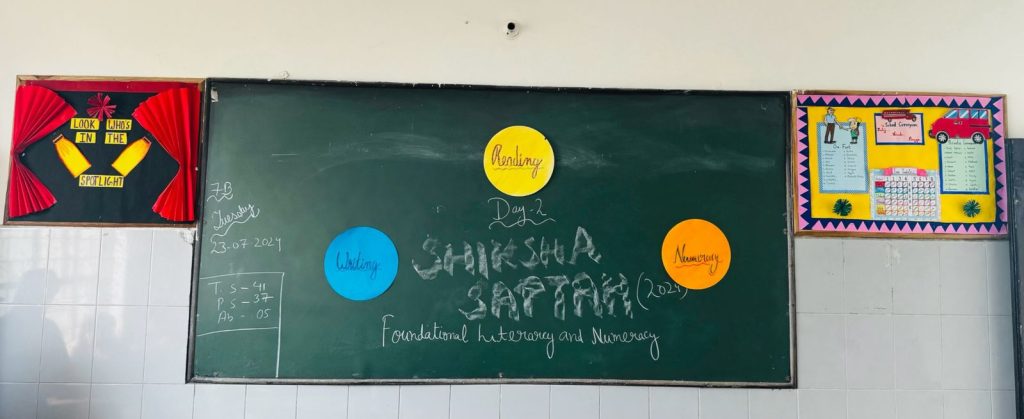 LOOK WHO'S
IN THE
SPOTLIGHT
7B
Tuesday
23.07.2024
T. S - 41
P. S - 37
Ab - 05
Reading
Day-2
Writing
SHIKSHA
SAPTAH (2024)
Numeracy
Foundational Literarcy and Numeracy
School Conveyance
On Foot